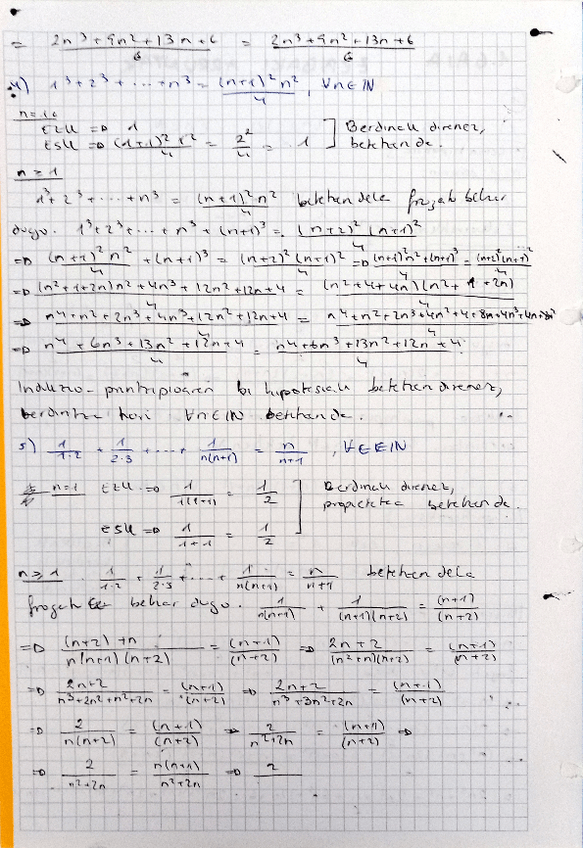 = (2n³+9n²+13n+6)/6 = (2n³+9n²+13n+6)/6
4) 1³+2³+...+n³ = ((n+1)²n²)/4, ∀n∈IN
n=1:
EZK => 1
ESK => ((1+1)²1²)/4 = 2²/4 = 1 ] Berdinak direnez, betetzen da.
n≥1
1³+2³+...+n³ = ((n+1)²n²)/4 betetzen dela frogatu behar
dugu. 1³+2³+...+n³+(n+1)³ = ((n+2)²(n+1)²)/4
=> ((n+1)²n²)/4 + (n+1)³ = ((n+2)²(n+1)²)/4 => ((n+1)²n²+(n+1)³)/4 = ((n+2)²(n+1)²)/4
=> ((n²+1+2n)n²+4n³+12n²+12n+4)/4 = ((n²+4+4n)(n²+1+2n))/4
=> (n⁴+n²+2n³+4n³+12n²+12n+4)/4 = (n⁴+n²+2n³+4n²+4+8n+4n³+4n+8n²)/4
=> (n⁴+6n³+13n²+12n+4)/4 = (n⁴+6n³+13n²+12n+4)/4
Indukzio-printzipioaren bi hipotesiak betetzen direnez,
berdintza hori ∀n∈IN betetzen da.
5) 1/(1·2) + 1/(2·3) + ... + 1/(n(n+1)) = n/(n+1), ∀∈IN
n=1 EZK => 1/(1(1+1)) = 1/2 ] Berdinak direnez,
propietatea betetzen da.
ESK => 1/(1+1) = 1/2
n≥1. 1/(1·2) + 1/(2·3) + ... + 1/(n(n+1)) = n/(n+1) betetzen dela
frogatu behar dugu. 1/(n(n+1)) + 1/((n+1)(n+2)) = (n+1)/(n+2)
=> ((n+2)+n)/(n(n+1)(n+2)) = (n+1)/(n+2) => (2n+2)/((n²+n)(n+2)) = (n+1)/(n+2)
=> (2n+2)/(n³+2n²+n²+2n) = (n+1)/(n+2) => (2n+2)/(n³+3n²+2n) = (n+1)/(n+2)
=> 2/(n(n+2)) = (n+1)/(n+2) => 2/(n²+2n) = (n+1)/(n+2) =>
=> 2/(n²+2n) = n(n+1)/(n²+2n) => 2